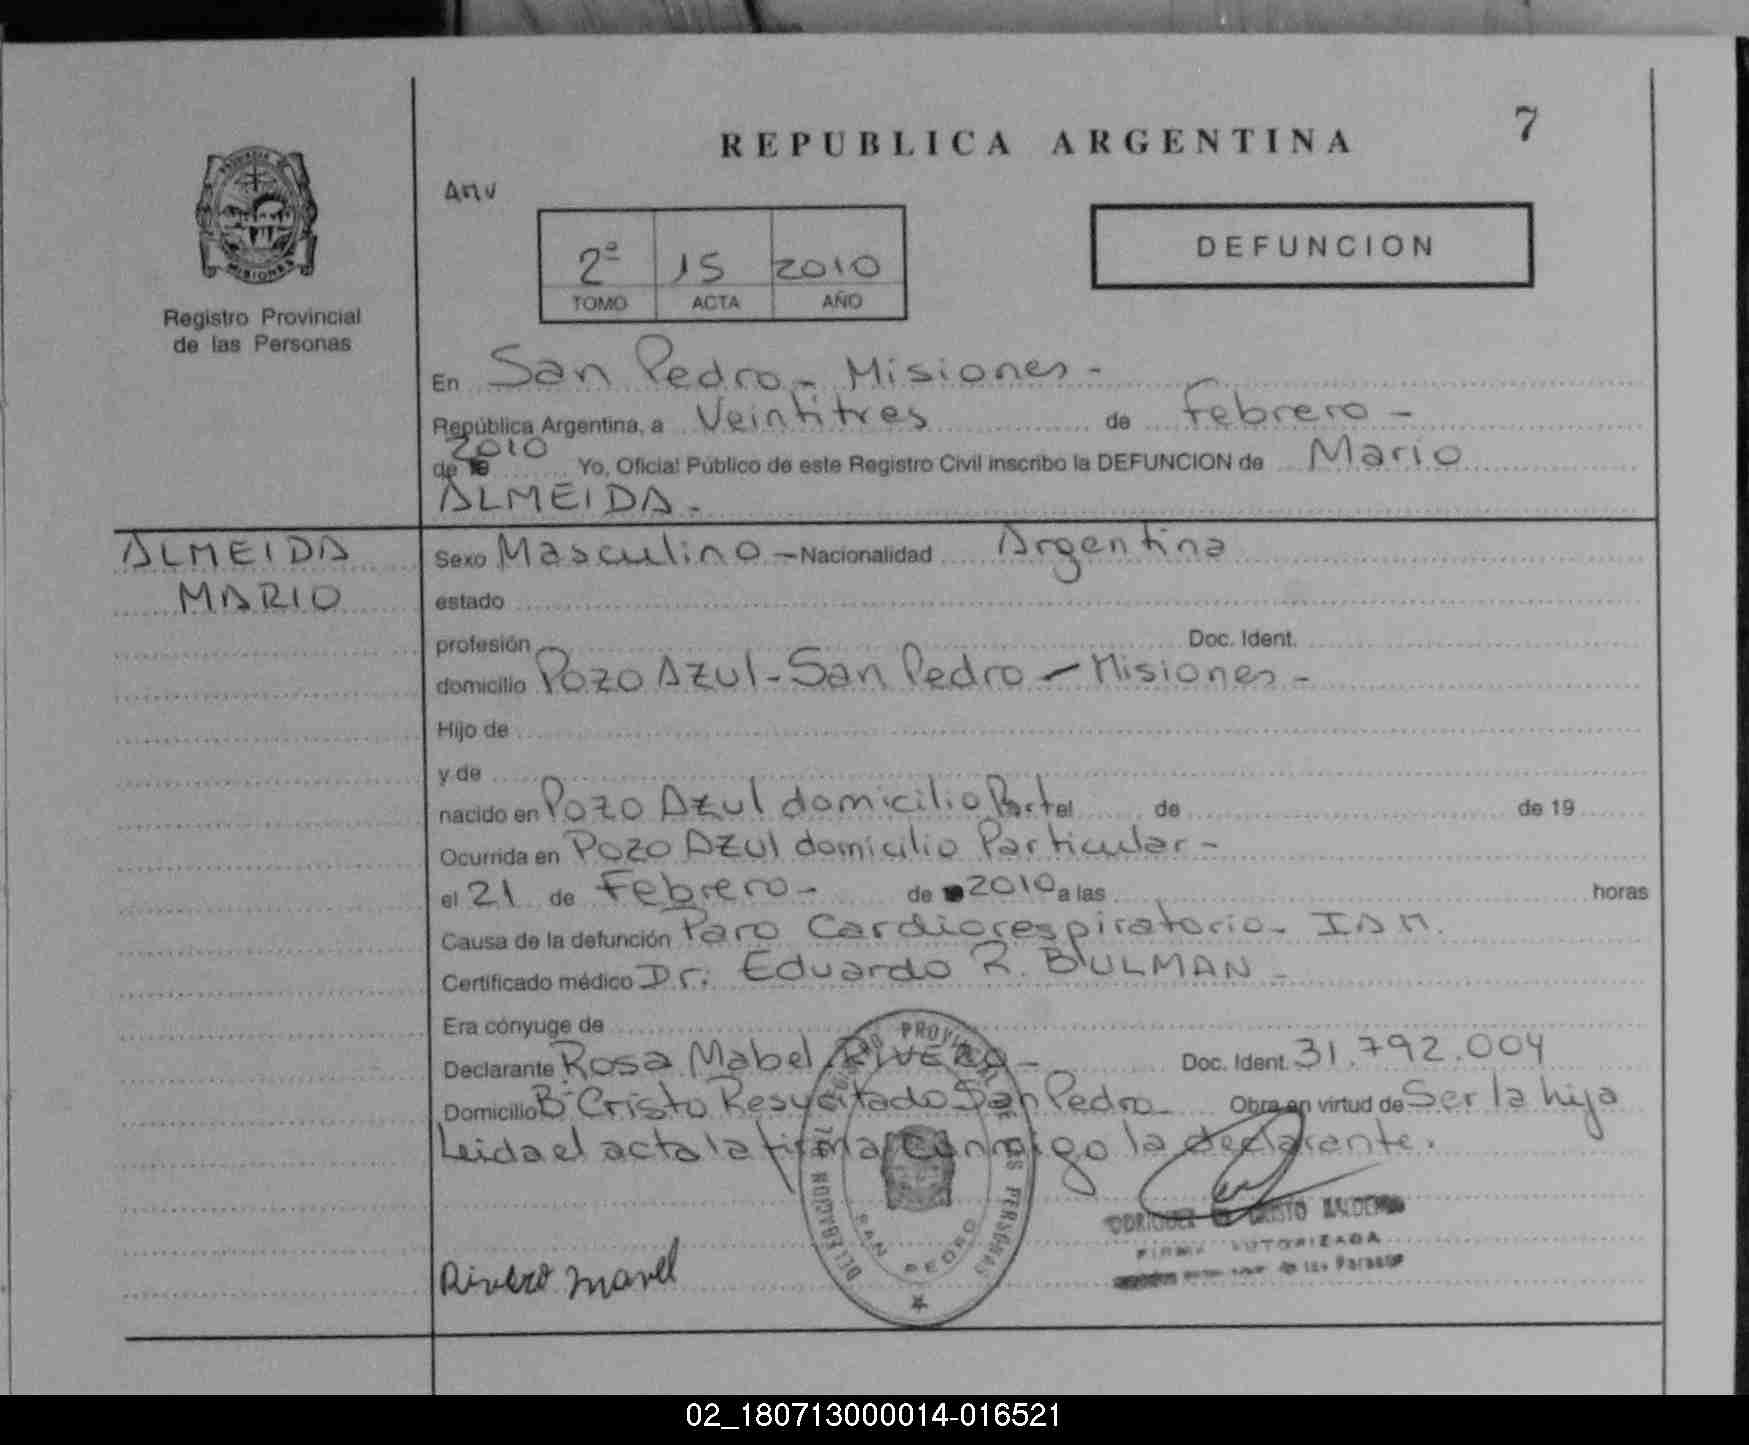 7
REPUBLICA ARGENTINA
Anv
2ª 15 2010
TOMO ACTA AÑO
DEFUNCION
Registro Provincial
de las Personas
En San Pedro - Misiones -
República Argentina, a Veintitres de Febrero -
2010
de Yo, Oficial Público de este Registro Civil inscribo la DEFUNCION de Mario
ALMEIDA -
ALMEIDA
MARIO
Sexo Masculino - Nacionalidad Argentina
estado
profesión Doc. Ident.
domicilio Pozo Azul - San Pedro - Misiones -
Hijo de
y de
nacido en Pozo Azul domicilio Part el de de 19
Ocurrida en Pozo Azul domicilio Particular -
el 21 de Febrero - de 2010 a las horas
Causa de la defunción Paro Cardiorespiratorio - IAM.
Certificado médico Dr. Eduardo R. BULMAN -
Era cónyuge de
Declarante Rosa Mabel RIVERO - Doc. Ident. 31.792.004
Domicilio Bº Cristo Resucitado San Pedro - Obra en virtud de Ser la hija
Leida el acta la firma conmigo la declarante.
REGISTRO PROVINCIAL DE LAS PERSONAS
DELEGACION
SAN PEDRO
CRISTO
FIRMA AUTORIZADA
Rivero mavel
02_180713000014-016521